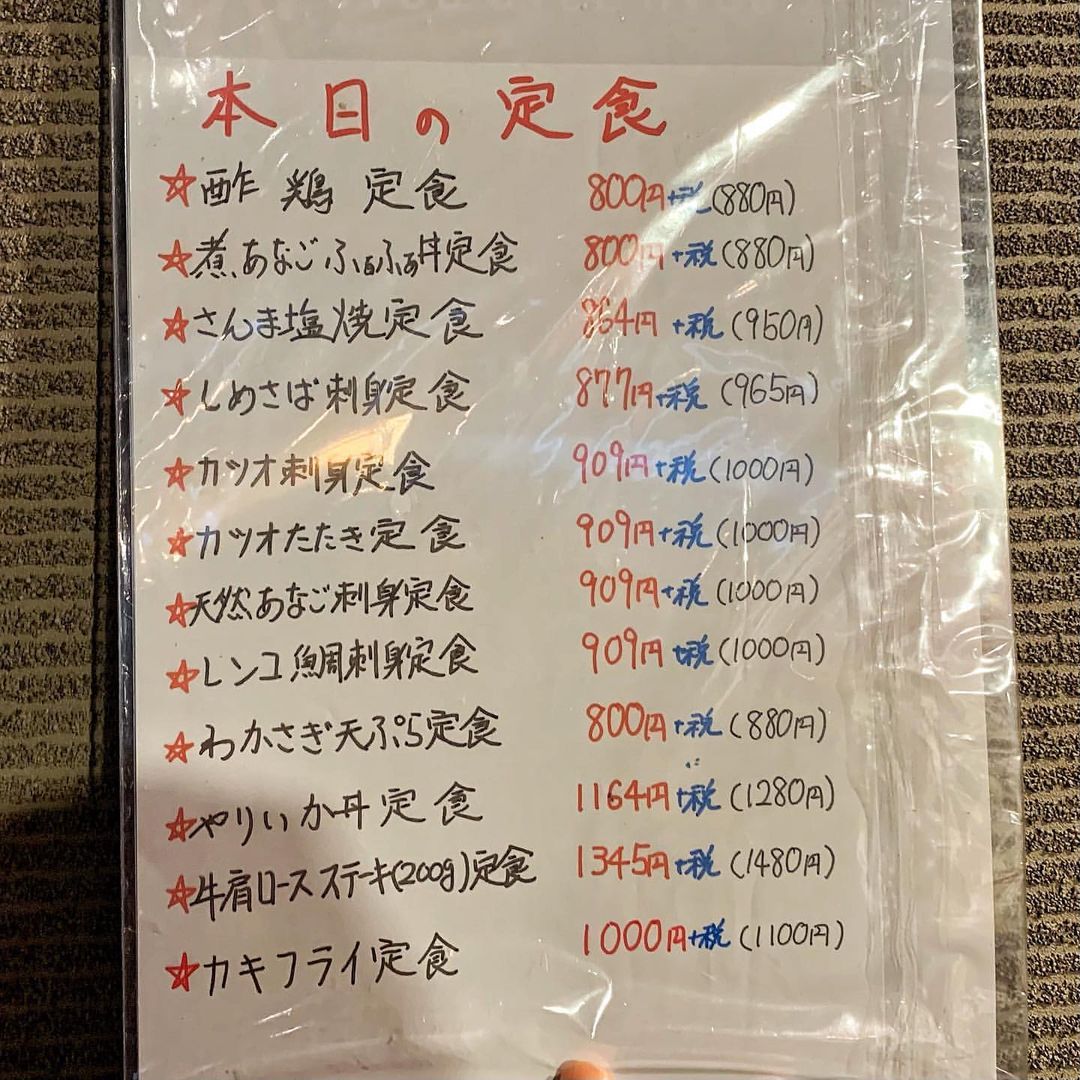 本日の定食
☆酢鶏定食 800円+税(880円)
☆煮あなごふわふわ丼定食 800円+税(880円)
☆さんま塩焼定食 864円+税(950円)
☆しめさば刺身定食 877円+税(965円)
☆カツオ刺身定食 909円+税(1000円)
☆カツオたたき定食 909円+税(1000円)
☆天然あなご刺身定食 909円+税(1000円)
☆レンコ鯛刺身定食 909円+税(1000円)
☆わかさぎ天ぷら定食 800円+税(880円)
☆やりいか丼定食 1164円+税(1280円)
☆牛肩ロースステーキ(200g)定食 1345円+税(1480円)
☆カキフライ定食 1000円+税(1100円)